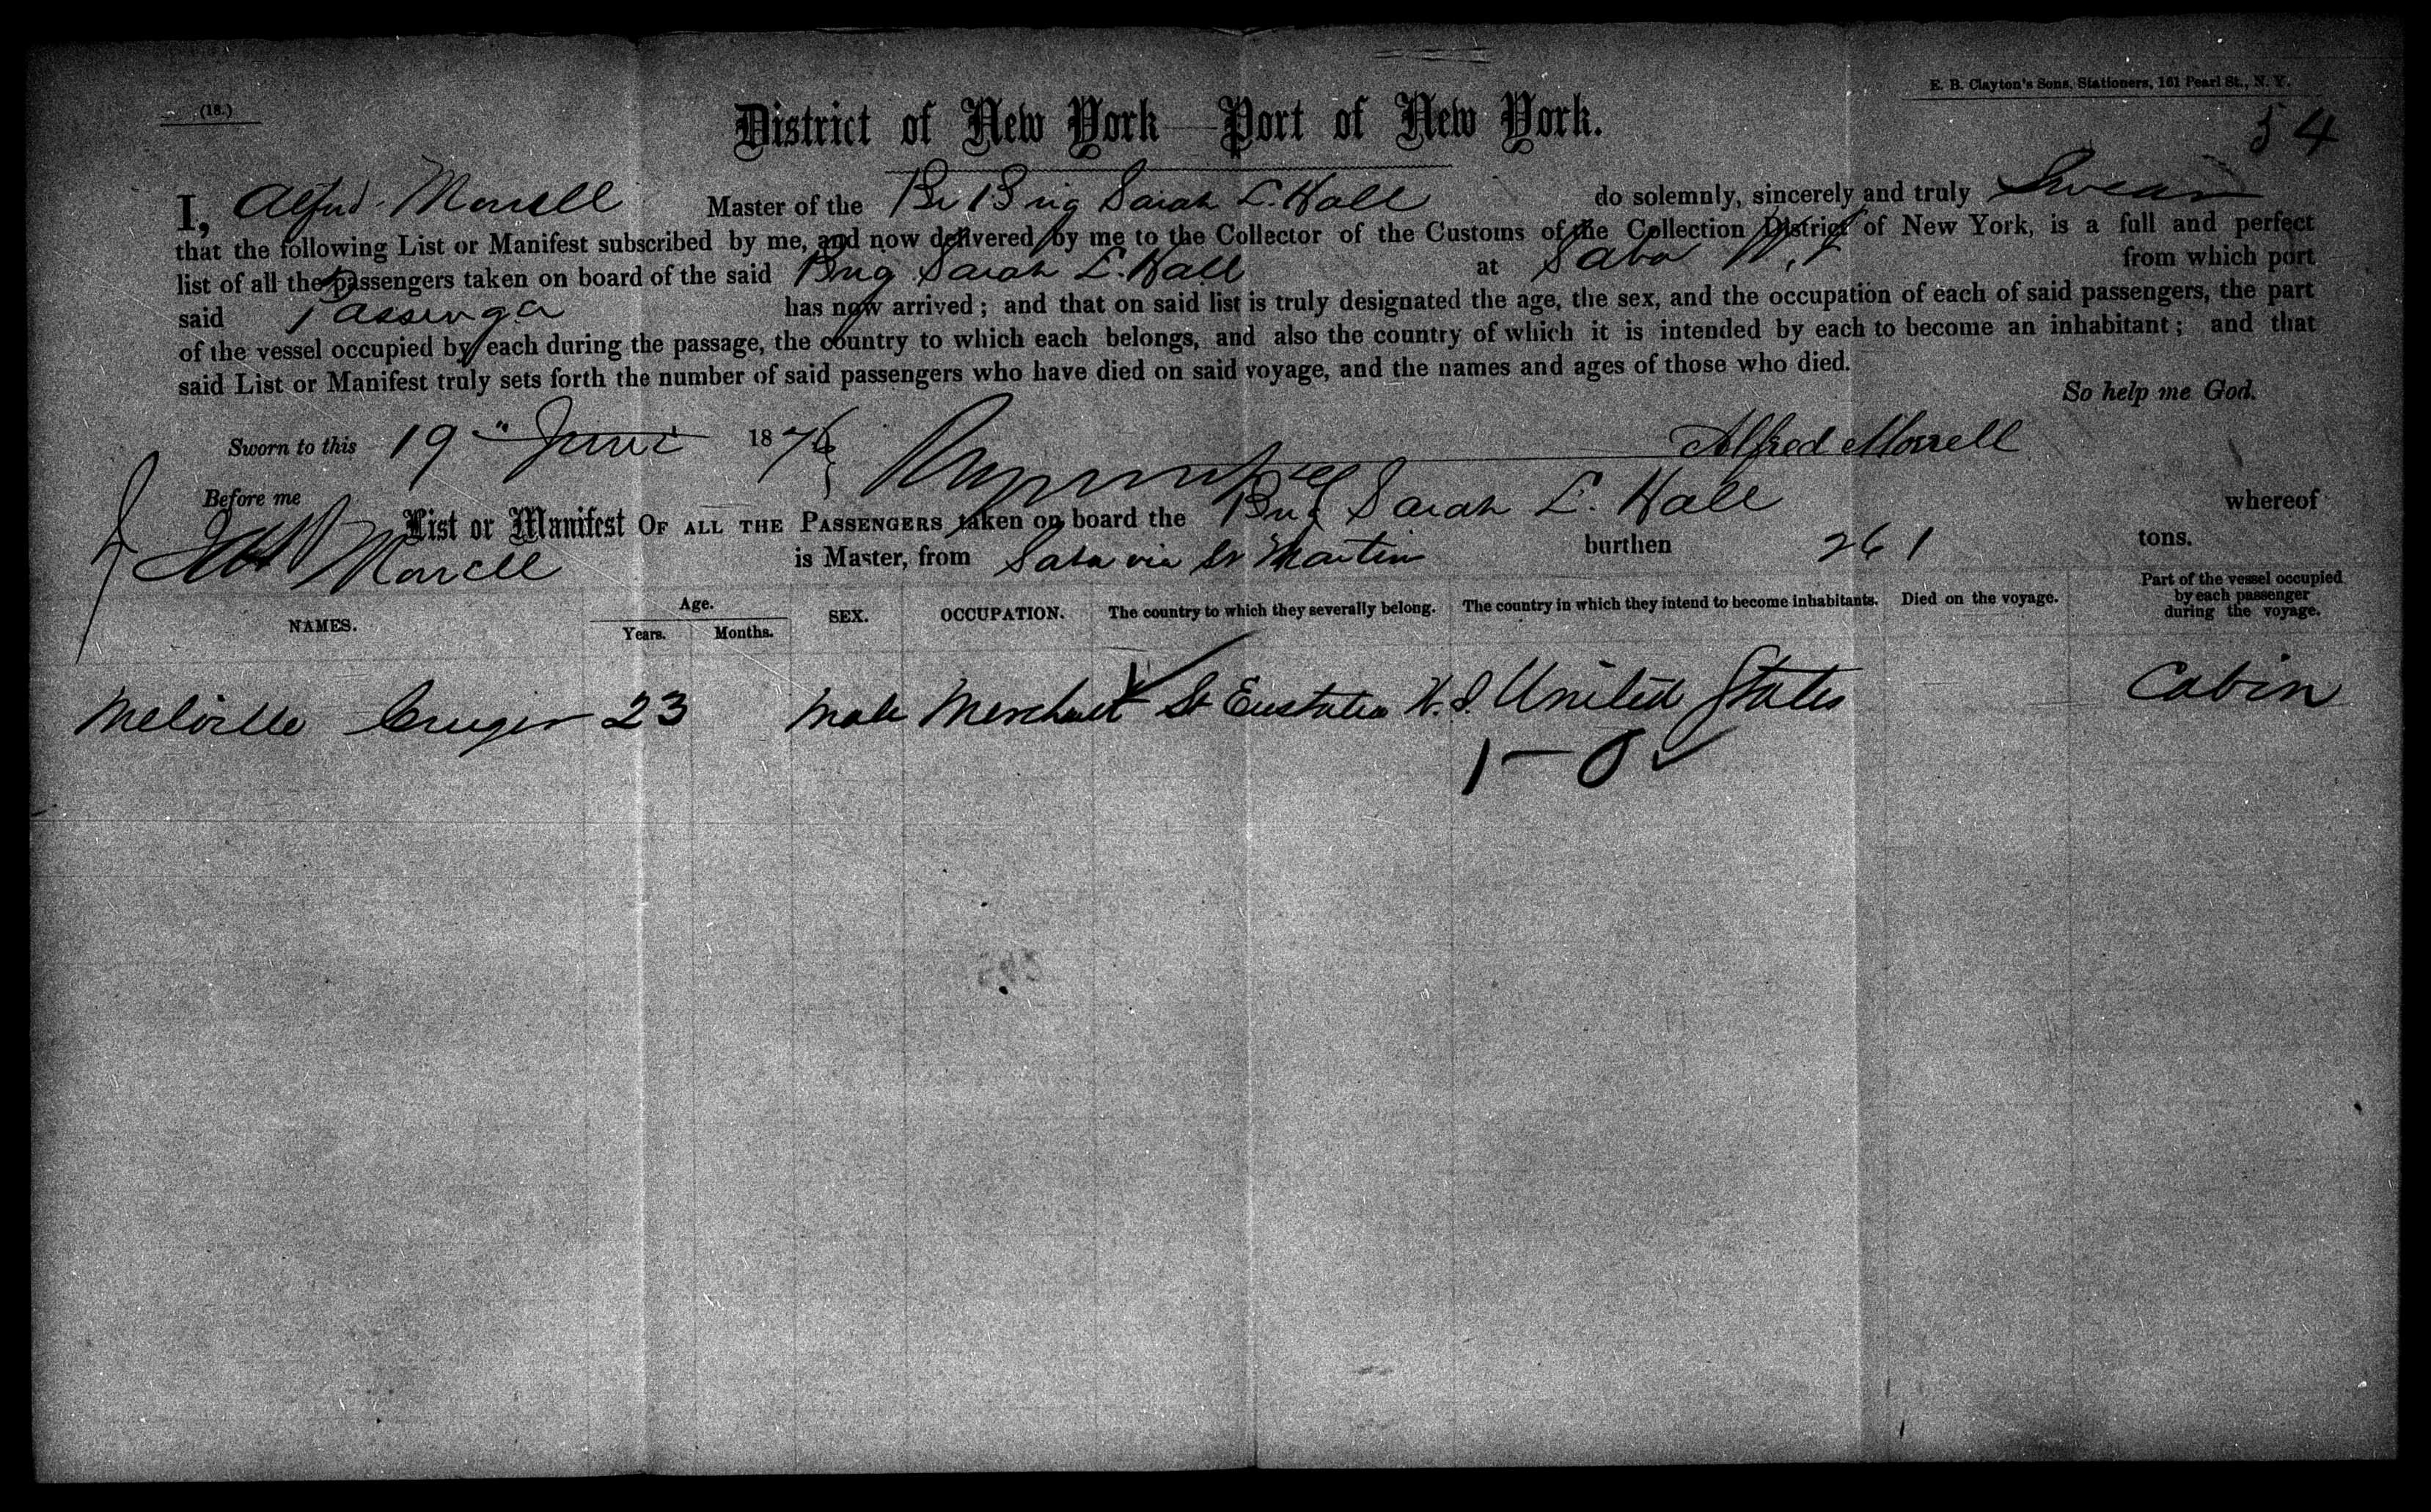 (18.)
E. B. Clayton's Sons, Stationers, 161 Pearl St., N. Y.
54
District of New York—Port of New York.
I, Alfred Morrell Master of the Br Brig Sarah L. Hall do solemnly, sincerely and truly Swear
that the following List or Manifest subscribed by me, and now delivered by me to the Collector of the Customs of the Collection District of New York, is a full and perfect
list of all the passengers taken on board of the said Brig Sarah L. Hall at Saba W. I from which port
said Passenger has now arrived; and that on said list is truly designated the age, the sex, and the occupation of each of said passengers, the part
of the vessel occupied by each during the passage, the country to which each belongs, and also the country of which it is intended by each to become an inhabitant; and that
said List or Manifest truly sets forth the number of said passengers who have died on said voyage, and the names and ages of those who died.
So help me God.
Sworn to this 19" June 1876
Alfred Morrell
Before me
List or Manifest OF ALL THE PASSENGERS taken on board the Brig Sarah L. Hall whereof
Morrell is Master, from Saba via St Martin burthen 261 tons.
NAMES. Age. Years. Months. SEX. OCCUPATION. The country to which they severally belong. The country in which they intend to become inhabitants. Died on the voyage. Part of the vessel occupied by each passenger during the voyage.
Melville Cruger 23 Male Merchant St Eustatia W. I. United States Cabin
1 — 0